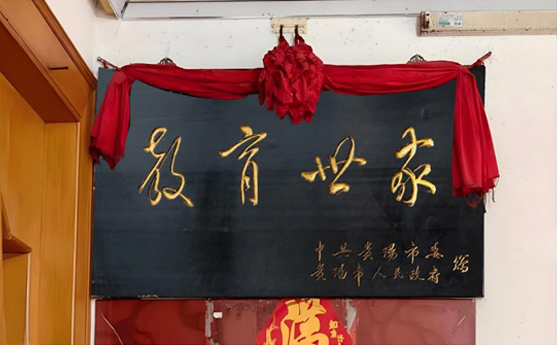 教育世家
中共贵阳市委
贵阳市人民政府
赠
福